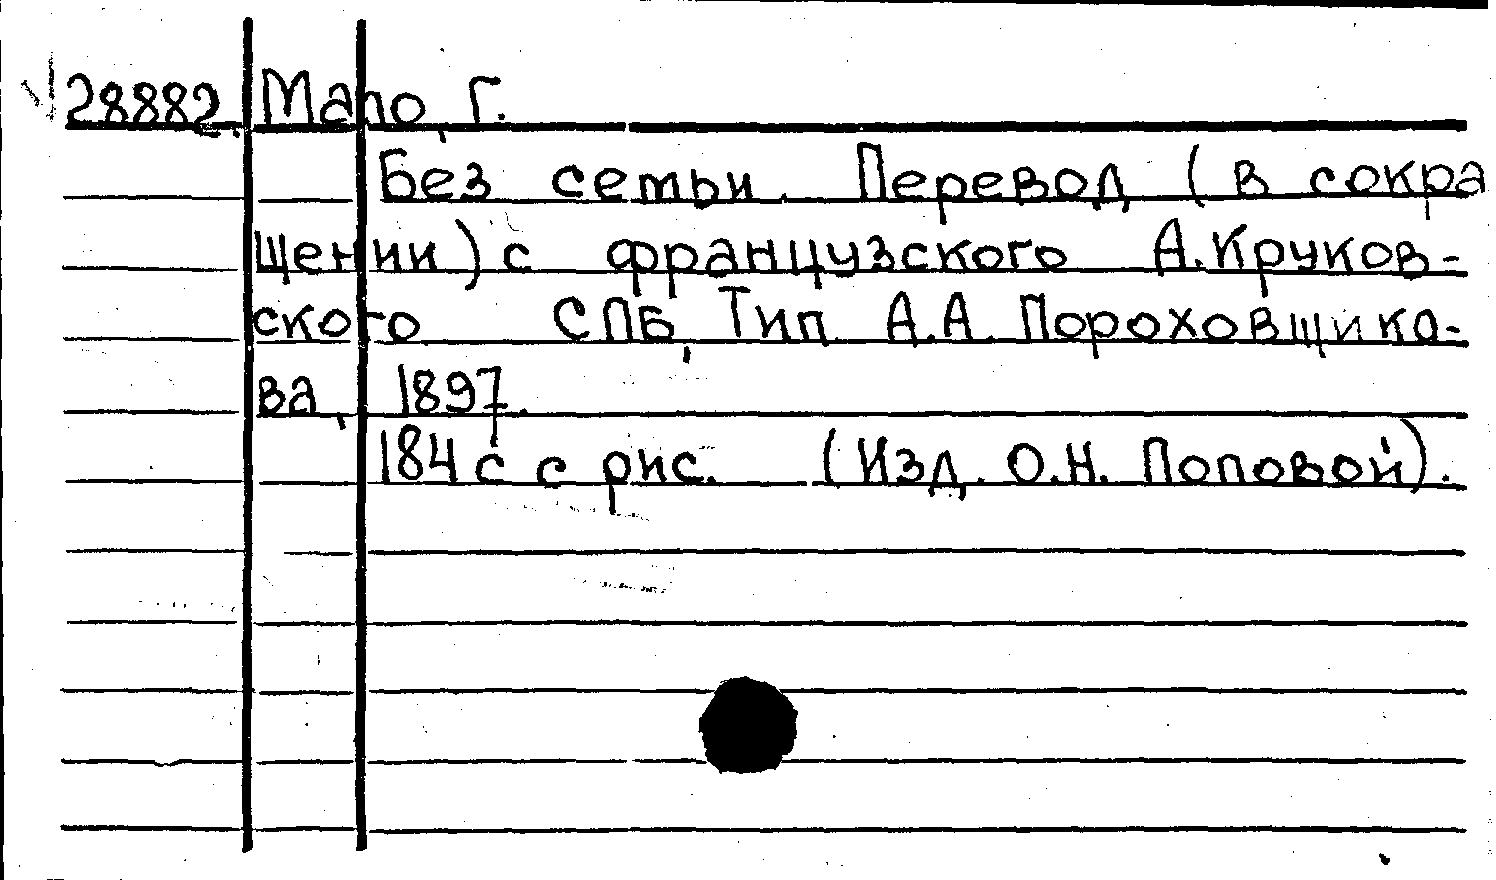 28882. Мало, Г.
Без семьи. Перевод (в сокра
щении) с французского А. Круков-
ского СПБ, Тип. А.А. Пороховщико-
ва, 1897.
184 с с рис. (Изд. О.Н. Поповой).